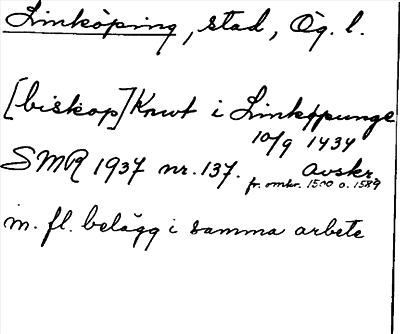 Linköping, stad, Ög. l.
[biskop] Knwt i Linkøpunge
10/9 1434
SMR 1937 nr. 137. Avskr.
fr. omkr. 1500 o. 1589
m. fl. belägg i samma arbete